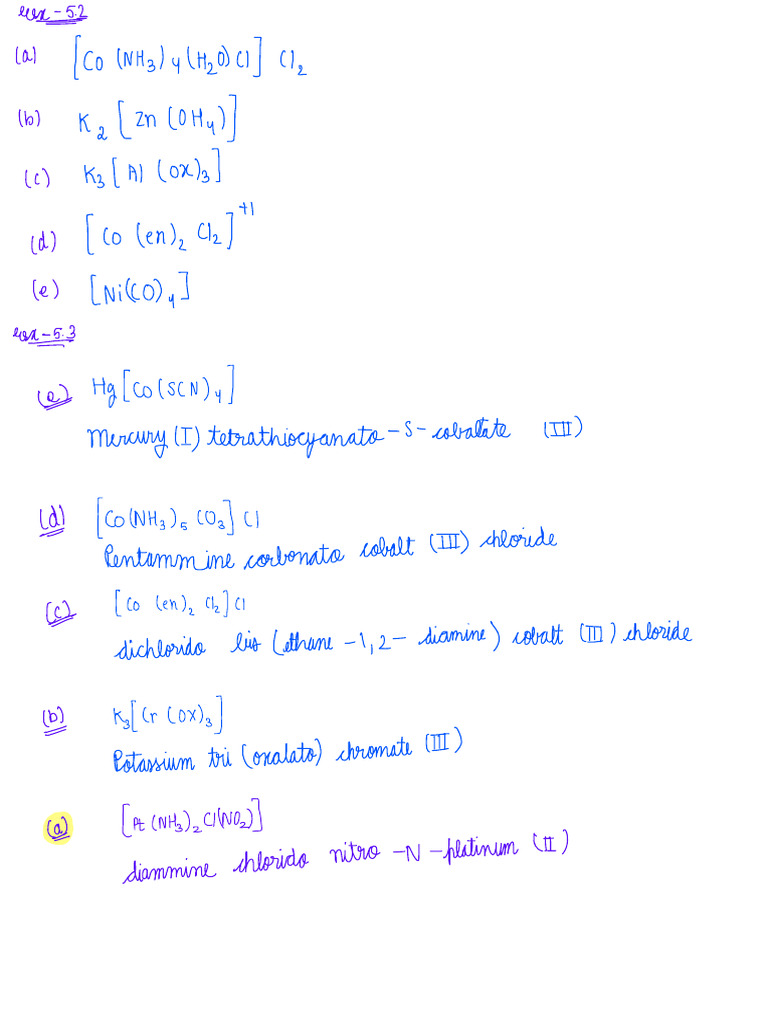 ex-5.2
(a) [Co (NH3)4 (H2O) Cl] Cl2
(b) K2 [Zn (OH4)]
(c) K3 [Al (Ox)3]
(d) [Co (en)2 Cl2]+1
(e) [Ni(CO)4]
ex-5.3
(e) Hg[Co(SCN)4]
Mercury (I) tetrathiocyanato-S-cobaltate (III)
(d) [Co(NH3)5 CO3] Cl
Pentammine carbonato cobalt (III) chloride
(c) [Co (en)2 Cl2] Cl
dichlorido bis (ethane -1,2- diamine) cobalt (III) chloride
(b) K3[Cr (Ox)3]
Potassium tri (oxalato) chromate (III)
(a) [Pt (NH3)2 Cl(NO2)]
diammine chlorido nitro -N-platinum (II)